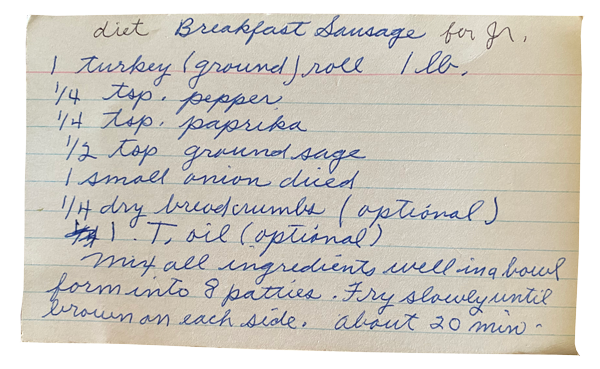 diet Breakfast Sausage for Jr.
1 turkey (ground) roll 1 lb.
1/4 tsp. pepper
1/4 tsp. paprika
1/2 tsp ground sage
1 small onion diced
1/4 dry breadcrumbs (optional)
1. T. oil (optional)
Mix all ingredients well in a bowl
form into 8 patties. Fry slowly until
brown on each side. About 20 min.